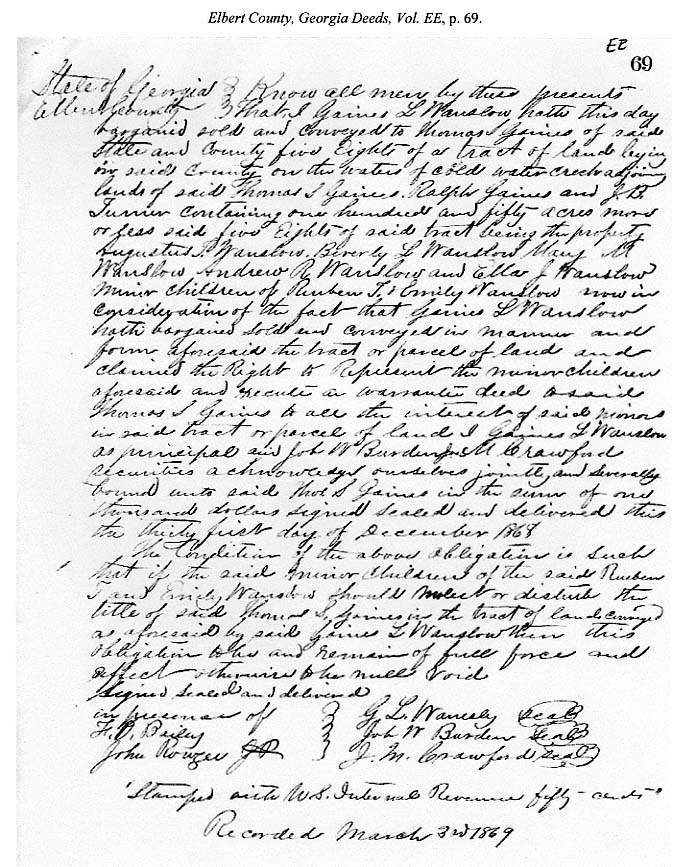 Elbert County, Georgia Deeds, Vol. EE, p. 69.
EE
69
State of Georgia } Know all men by these presents
Elbert County } That I Gaines L Wanslow hath this day
bargained sold and conveyed to Thomas S Gaines of said
State and County five Eights of a tract of land lying
in said County on the waters of cold water creek adjoining
lands of said Thomas S Gaines. Ralph Gaines and J. B.
Turner containing one hundred and fifty acres more
or less said five Eights of said tract being the property
Augustus T. Wanslow. Beverly L Wanslow Mary M
Wanslow Andrew R Wanslow and Ella J Wanslow
minor children of Reuben T. & Emily Wanslow now in
consideration of the fact that Gaines L Wanslow
hath bargained sold and conveyed in manner and
form aforesaid the tract or parcel of land and
claimed the Right to Represent the minor children
aforesaid and execute a warrantee deed to said
Thomas S Gaines to all the interest of said minors
in said tract or parcel of land I Gaines L Wanslow
as principal and Job W Burden J. M Crawford
securities acknowledge ourselves jointly and severally
bound unto said Thos S Gaines in the sum of one
thousand dollars signed sealed and delivered this
the thirty first day of December 1868
The Condition of the above obligation is such
that if the said minor Children of the said Reuben
T and Emily Wanslow should molest or disturb the
title of said Thomas S. Gaines in the tract of land conveyed
as aforesaid by said Gaines L Wanslow then this
obligation to be and remain of full force and
effect otherwise to be null void
Signed sealed and delivered
in presence of } G. L. Wansley seal
Bailey } Job W Burden seal
John Rowzee JP } J. M. Crawford seal
"Stamped with U.S. Internal Revenue fifty-cents"
Recorded March 3rd 1869